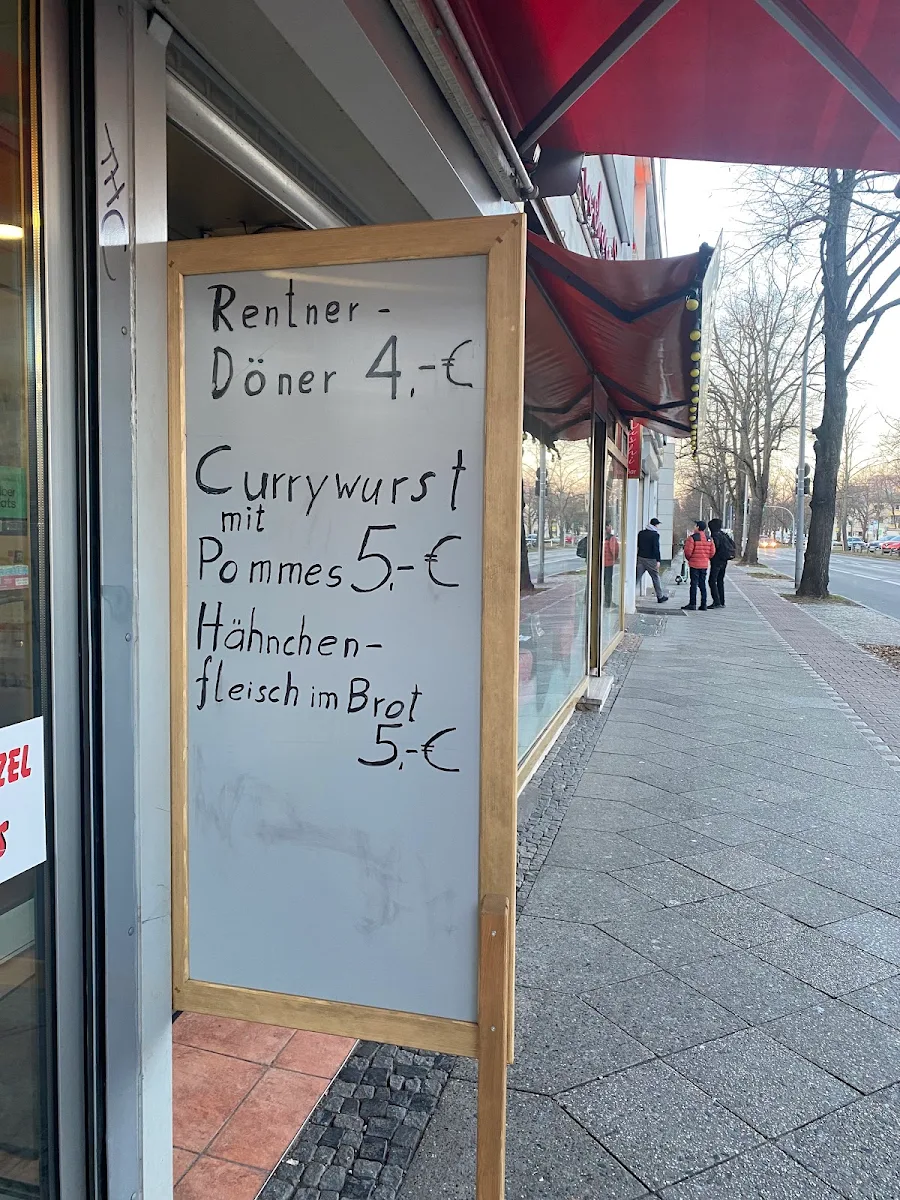 Rentner -
Döner 4,-€
Currywurst
mit
Pommes 5,-€
Hähnchen-
fleisch im Brot
5,-€